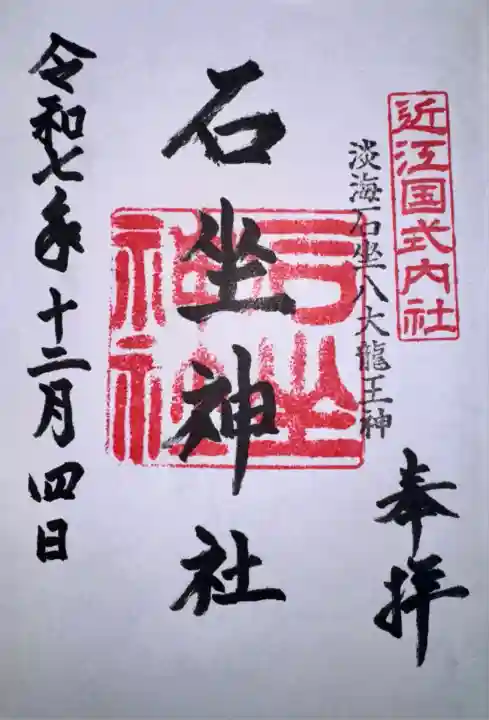 近江国式内社
奉拝
淡海石坐八大龍王神
石坐神社
石坐神社
令和七年十二月四日